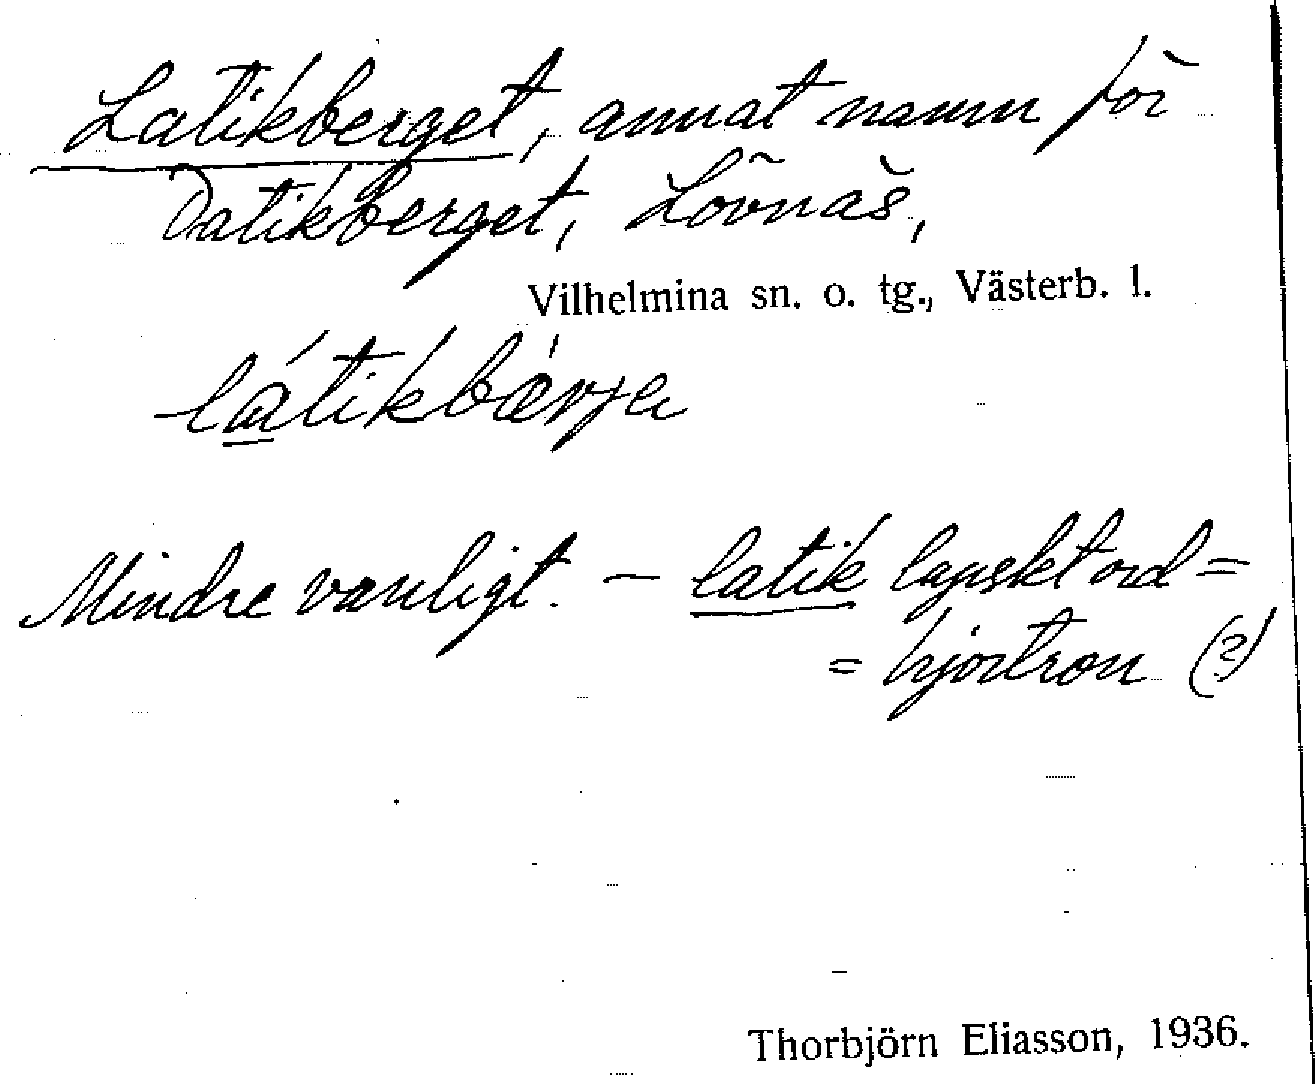 Latikberget, annat namn för
Datikberget, Lövnäs,
Vilhelmina sn. o. tg., Västerb. l.
látikbærja
Mindre vanligt. — latik lapskt ord =
= hjortron (?)
Thorbjörn Eliasson, 1936.